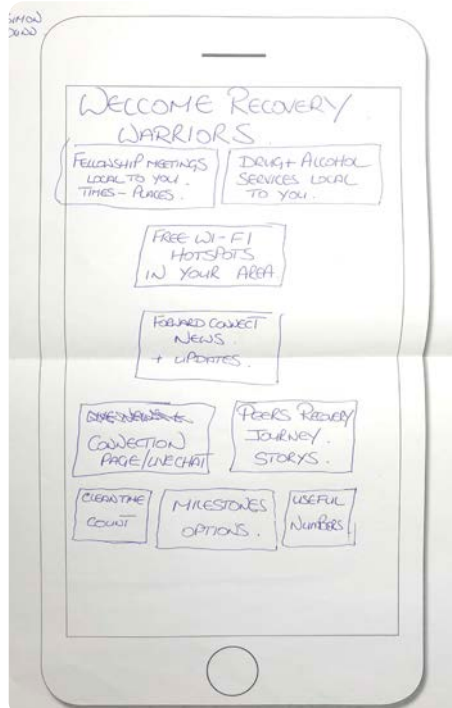 SIMON
DODD
WELCOME RECOVERY
WARRIORS.
FELLOWSHIP MEETINGS
LOCAL TO YOU.
TIMES - PLACES.
DRUG + ALCOHOL
SERVICES LOCAL
TO YOU.
FREE WI-FI
HOTSPOTS
IN YOUR AREA
FORWARD CONNECT
NEWS.
+ UPDATES.
CONNECTION
PAGE/LIVE CHAT
PEERS RECOVERY
JOURNEY.
STORYS.
CLEANTIME
COUNT
MILESTONES
OPTIONS.
USEFUL
NUMBERS